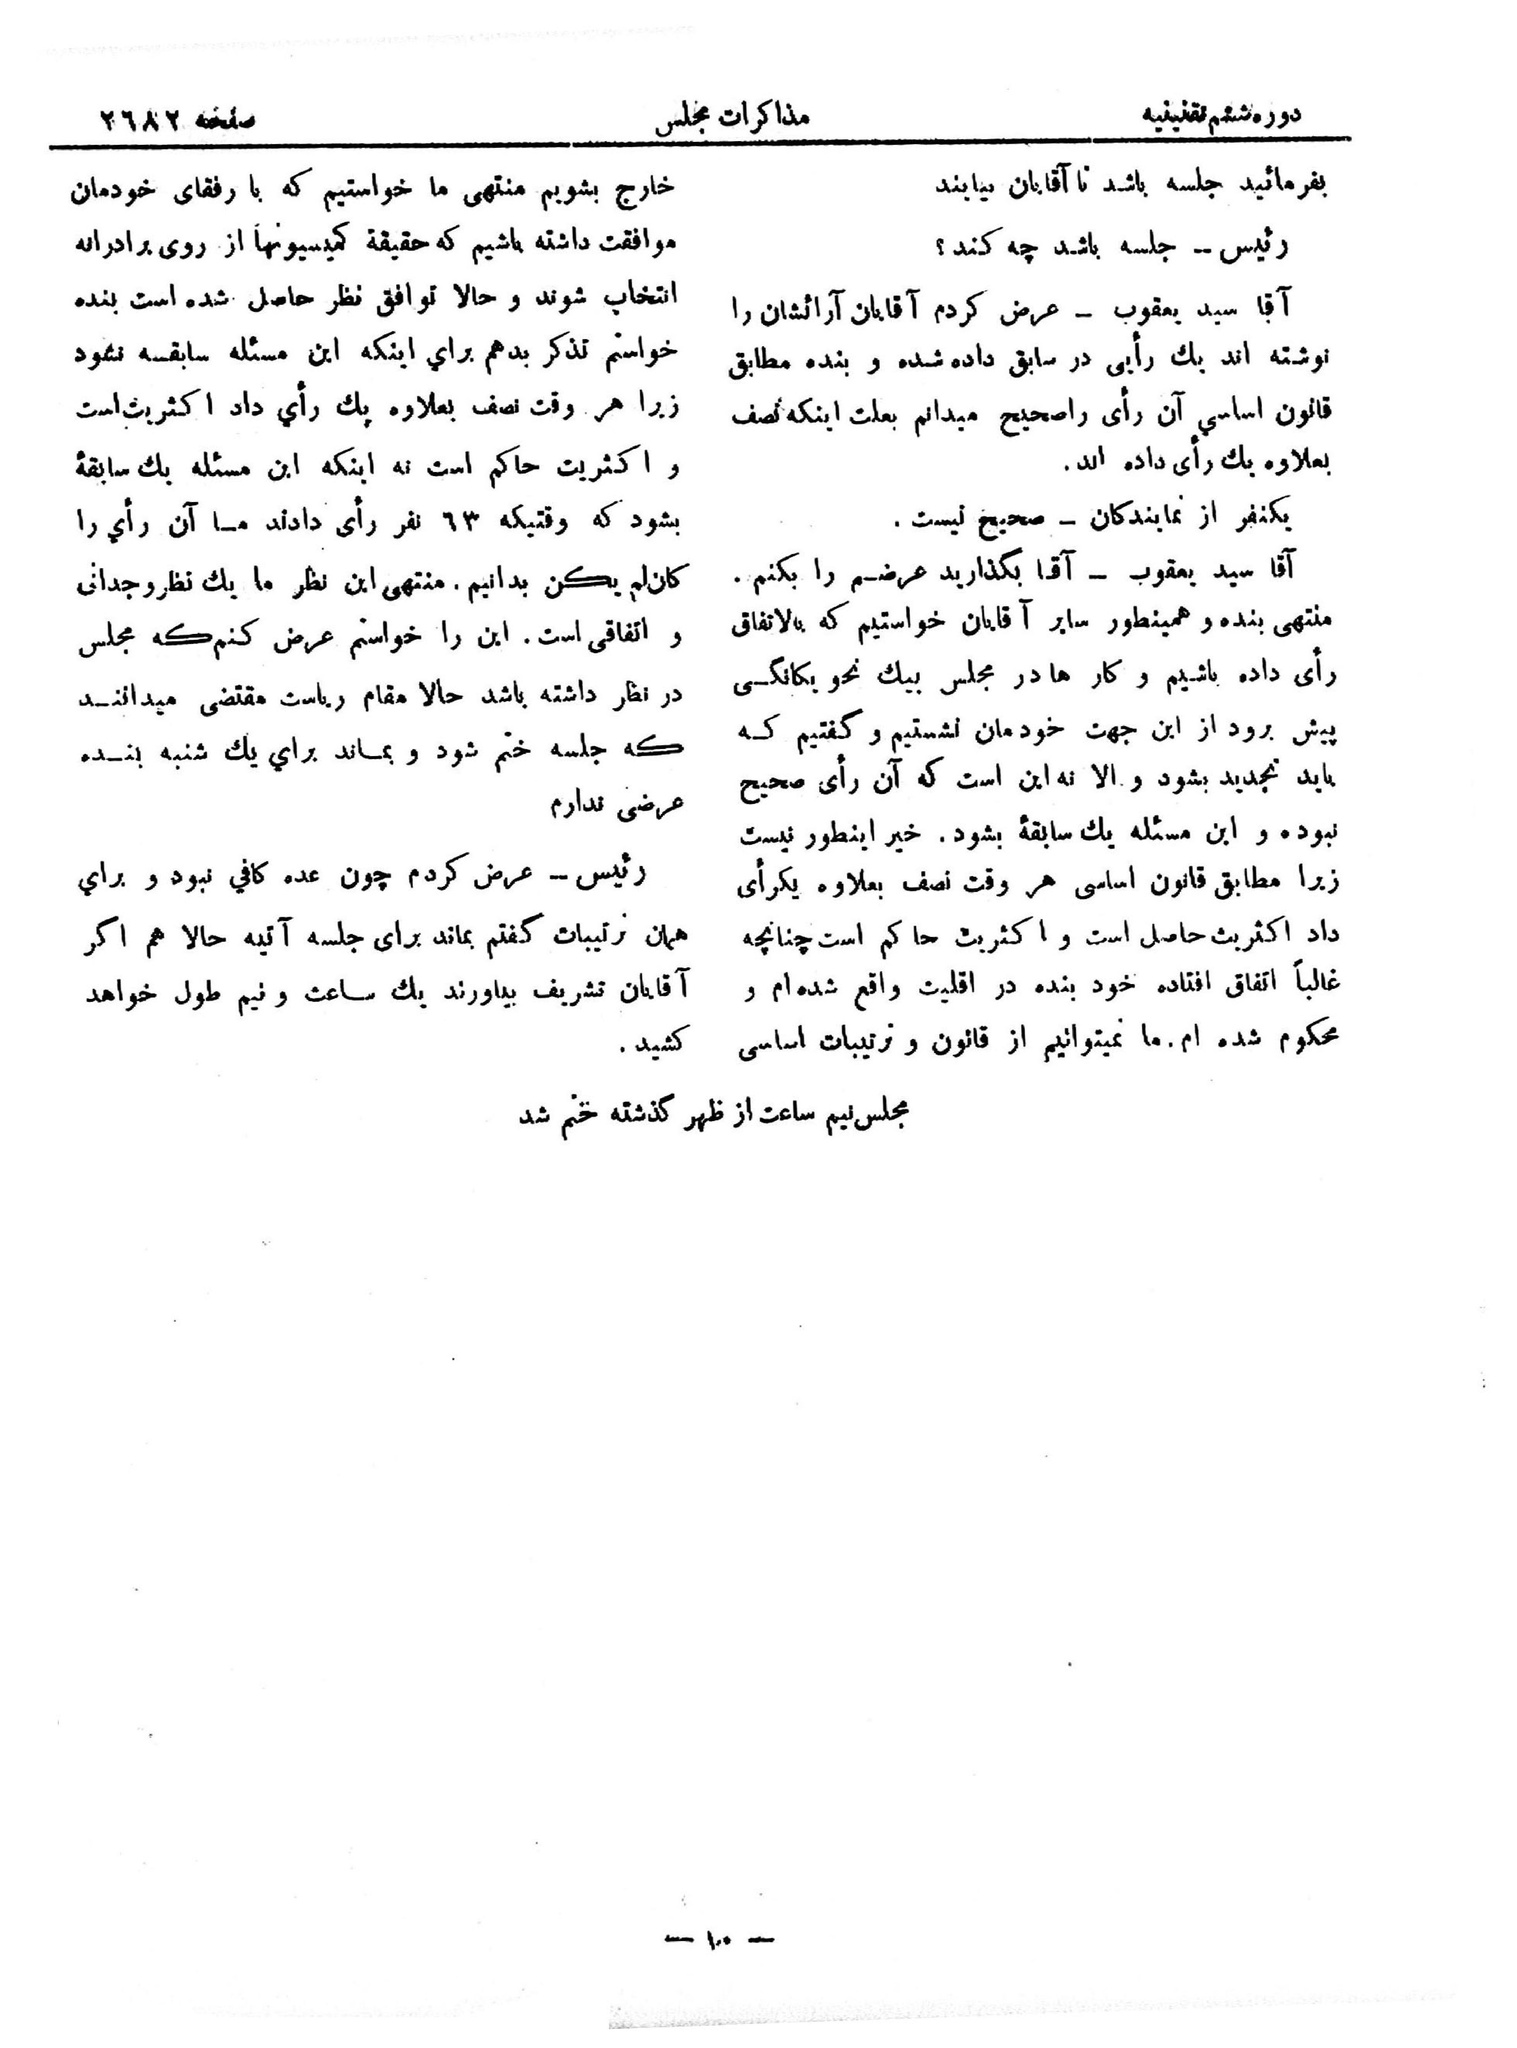 دوره ششم تقنینیه
مذاکرات مجلس
صفحه ۲٦۸۲
بفرمائید جلسه باشد تا آقایان بیایند
رئیس ــ جلسه باشد چه کند؟
آقا سید یعقوب ــ عرض کردم آقایان آرائشان را
نوشته اند یك رأیی در سابق داده شده و بنده مطابق
قانون اساسي آن رأی را صحیح میدانم بعلت اینکه نصف
بعلاوه یك رأی داده اند.
یکنفر از نمایندکان ــ صحیح نیست.
آقا سید یعقوب ــ آقا بگذارید عرضم را بکنم.
منتهی بنده و همینطور سایر آقایان خواستیم که بالاتفاق
رأی داده باشیم و کار ها در مجلس بیك نحو یکانگی
پیش برود از این جهت خودمان نشستیم و گفتیم که
باید تجدید بشود و الا نه این است که آن رأی صحیح
نبوده و این مسئله یك سابقهٔ بشود. خیر اینطور نیست
زیرا مطابق قانون اساسی هر وقت نصف بعلاوه یکرأی
داد اکثریت حاصل است و اکثریت حاکم است چنانچه
غالباً اتفاق افتاده خود بنده در اقلیت واقع شده ام و
محکوم شده ام. ما نمیتوانیم از قانون و ترتیبات اساسی
خارج بشویم منتهی ما خواستیم که با رفقای خودمان
موافقت داشته باشیم که حقیقة کمیسیونها از روی برادرانه
انتخاب شوند و حالا توافق نظر حاصل شده است بنده
خواستم تذکر بدهم براي اینکه این مسئله سابقسه نشود
زیرا هر وقت نصف بعلاوه یك رأي داد اکثریت است
و اکثریت حاکم است نه اینکه این مسئله یك سابقهٔ
بشود که وقتیکه ٦۳ نفر رأی دادند ما آن رأي را
کان لم یکن بدانیم. منتهی این نظر ما یك نظر وجدانی
و اتفاقی است. این را خواستم عرض کنم که مجلس
در نظر داشته باشد حالا مقام ریاست مقتضی میدانند
که جلسه ختم شود و بماند براي یك شنبه بنده
عرضی ندارم
رئیس ــ عرض کردم چون عده کافي نبود و براي
همان ترتیبات گفتم بماند برای جلسه آتیه حالا هم اگر
آقایان تشریف بیاورند یك ساعت و نیم طول خواهد
کشید.
مجلس نیم ساعت از ظهر گذشته ختم شد
— ۱۰ —